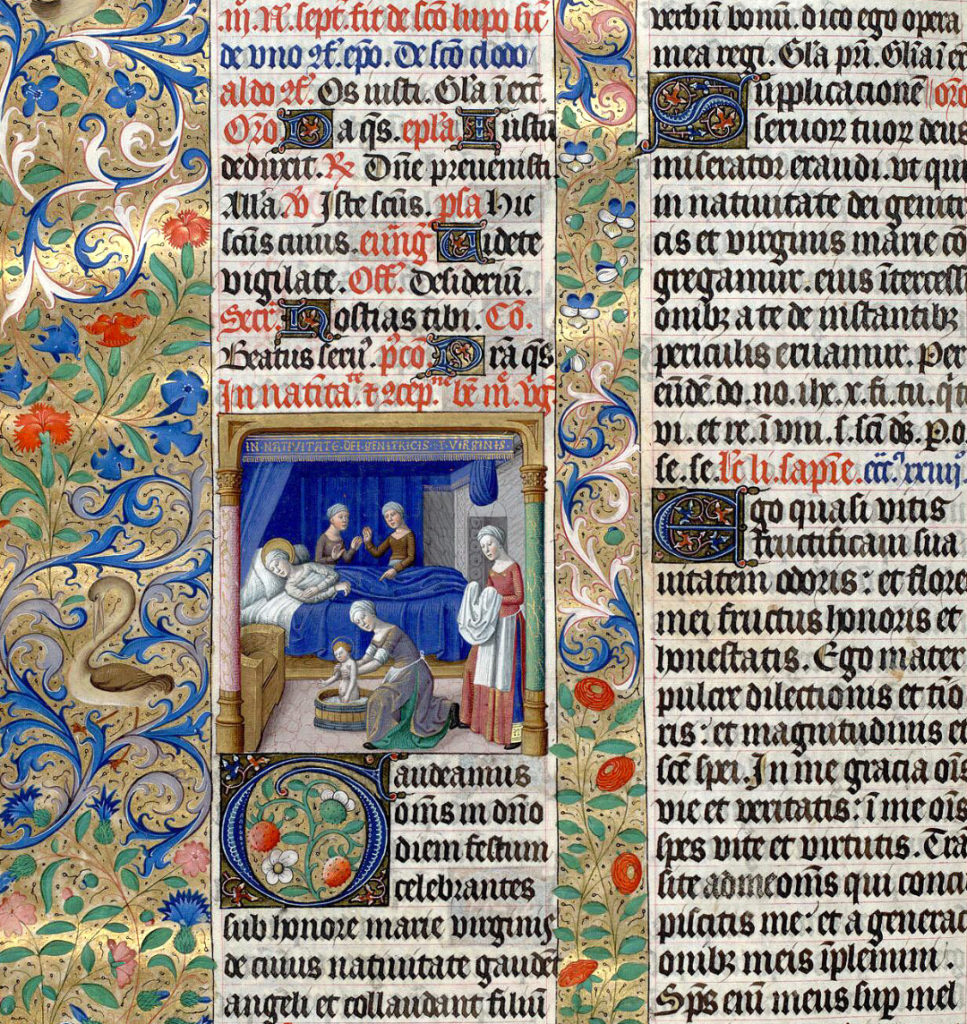 iij. N. sept̄. fit de sc̄o lupo sic̄
de vno ꝯf. ep̄o. De sc̄o clodo
aldo ꝯf. Os iusti. Gl̄a ī exc̄.
Or̄o Da q̄s. ep̄la. Iustū
deduxit. ℟ Dn̄e preuenisti
All̄a ℣ Iste sc̄us. p̄la Hic
sc̄us cuius. euāḡ Videte
vigilate. Off̄. Desideriū.
Secr̄. Hostias tibi. Cō.
Beatus seru᷒. p̄cō Pr̄a q̄s
In natīta.te & ꝯcep.ne be m̄. v̄ḡ
IN NATIVITATE DEI GENITRICIS & VIRGINIS
Gaudeamus
om̄s in dn̄o
diem festum
celebrantes
sub honore marie virginis
de cuius natiuitate gaudēt
angeli et collaudant filiū
verbū bonū. dico ego opera
mea regi. Gl̄a pr̄i. Gl̄a ī ex̄
Supplicationē or̄o
seruoꝝ tuoꝝ deus
miserator exaudi. vt qui
in natiuitate dei genitri
cis et virginis marie cō
gregamur. eius ītercessi
onibꝫ a te de instantibꝫ
periculis eruamur. Per
eūdē. do. no. ihe. x. fi. tu. qi
vi. et re. ī vni. s. sc̄i ds̄. p. o
se. se. Lc̄. li. sapīe. ccc. xxiiij.
Ego quasi vitis
fructificaui sua
uitatem odoris: et flores
mei fructus honoris et
honestatis. Ego mater
pulcre dilectionis et tīo
ris: et magnitudinis et
sc̄e spei. In me gracia ois̄
vie et veritatis: ī me ois̄
spes vite et virtutis. Trā
site ad me om̄s qui concu
piscitis me: et a generati
onibꝫ meis īplemini.
Sp̄s eni᷒ meus sup mel